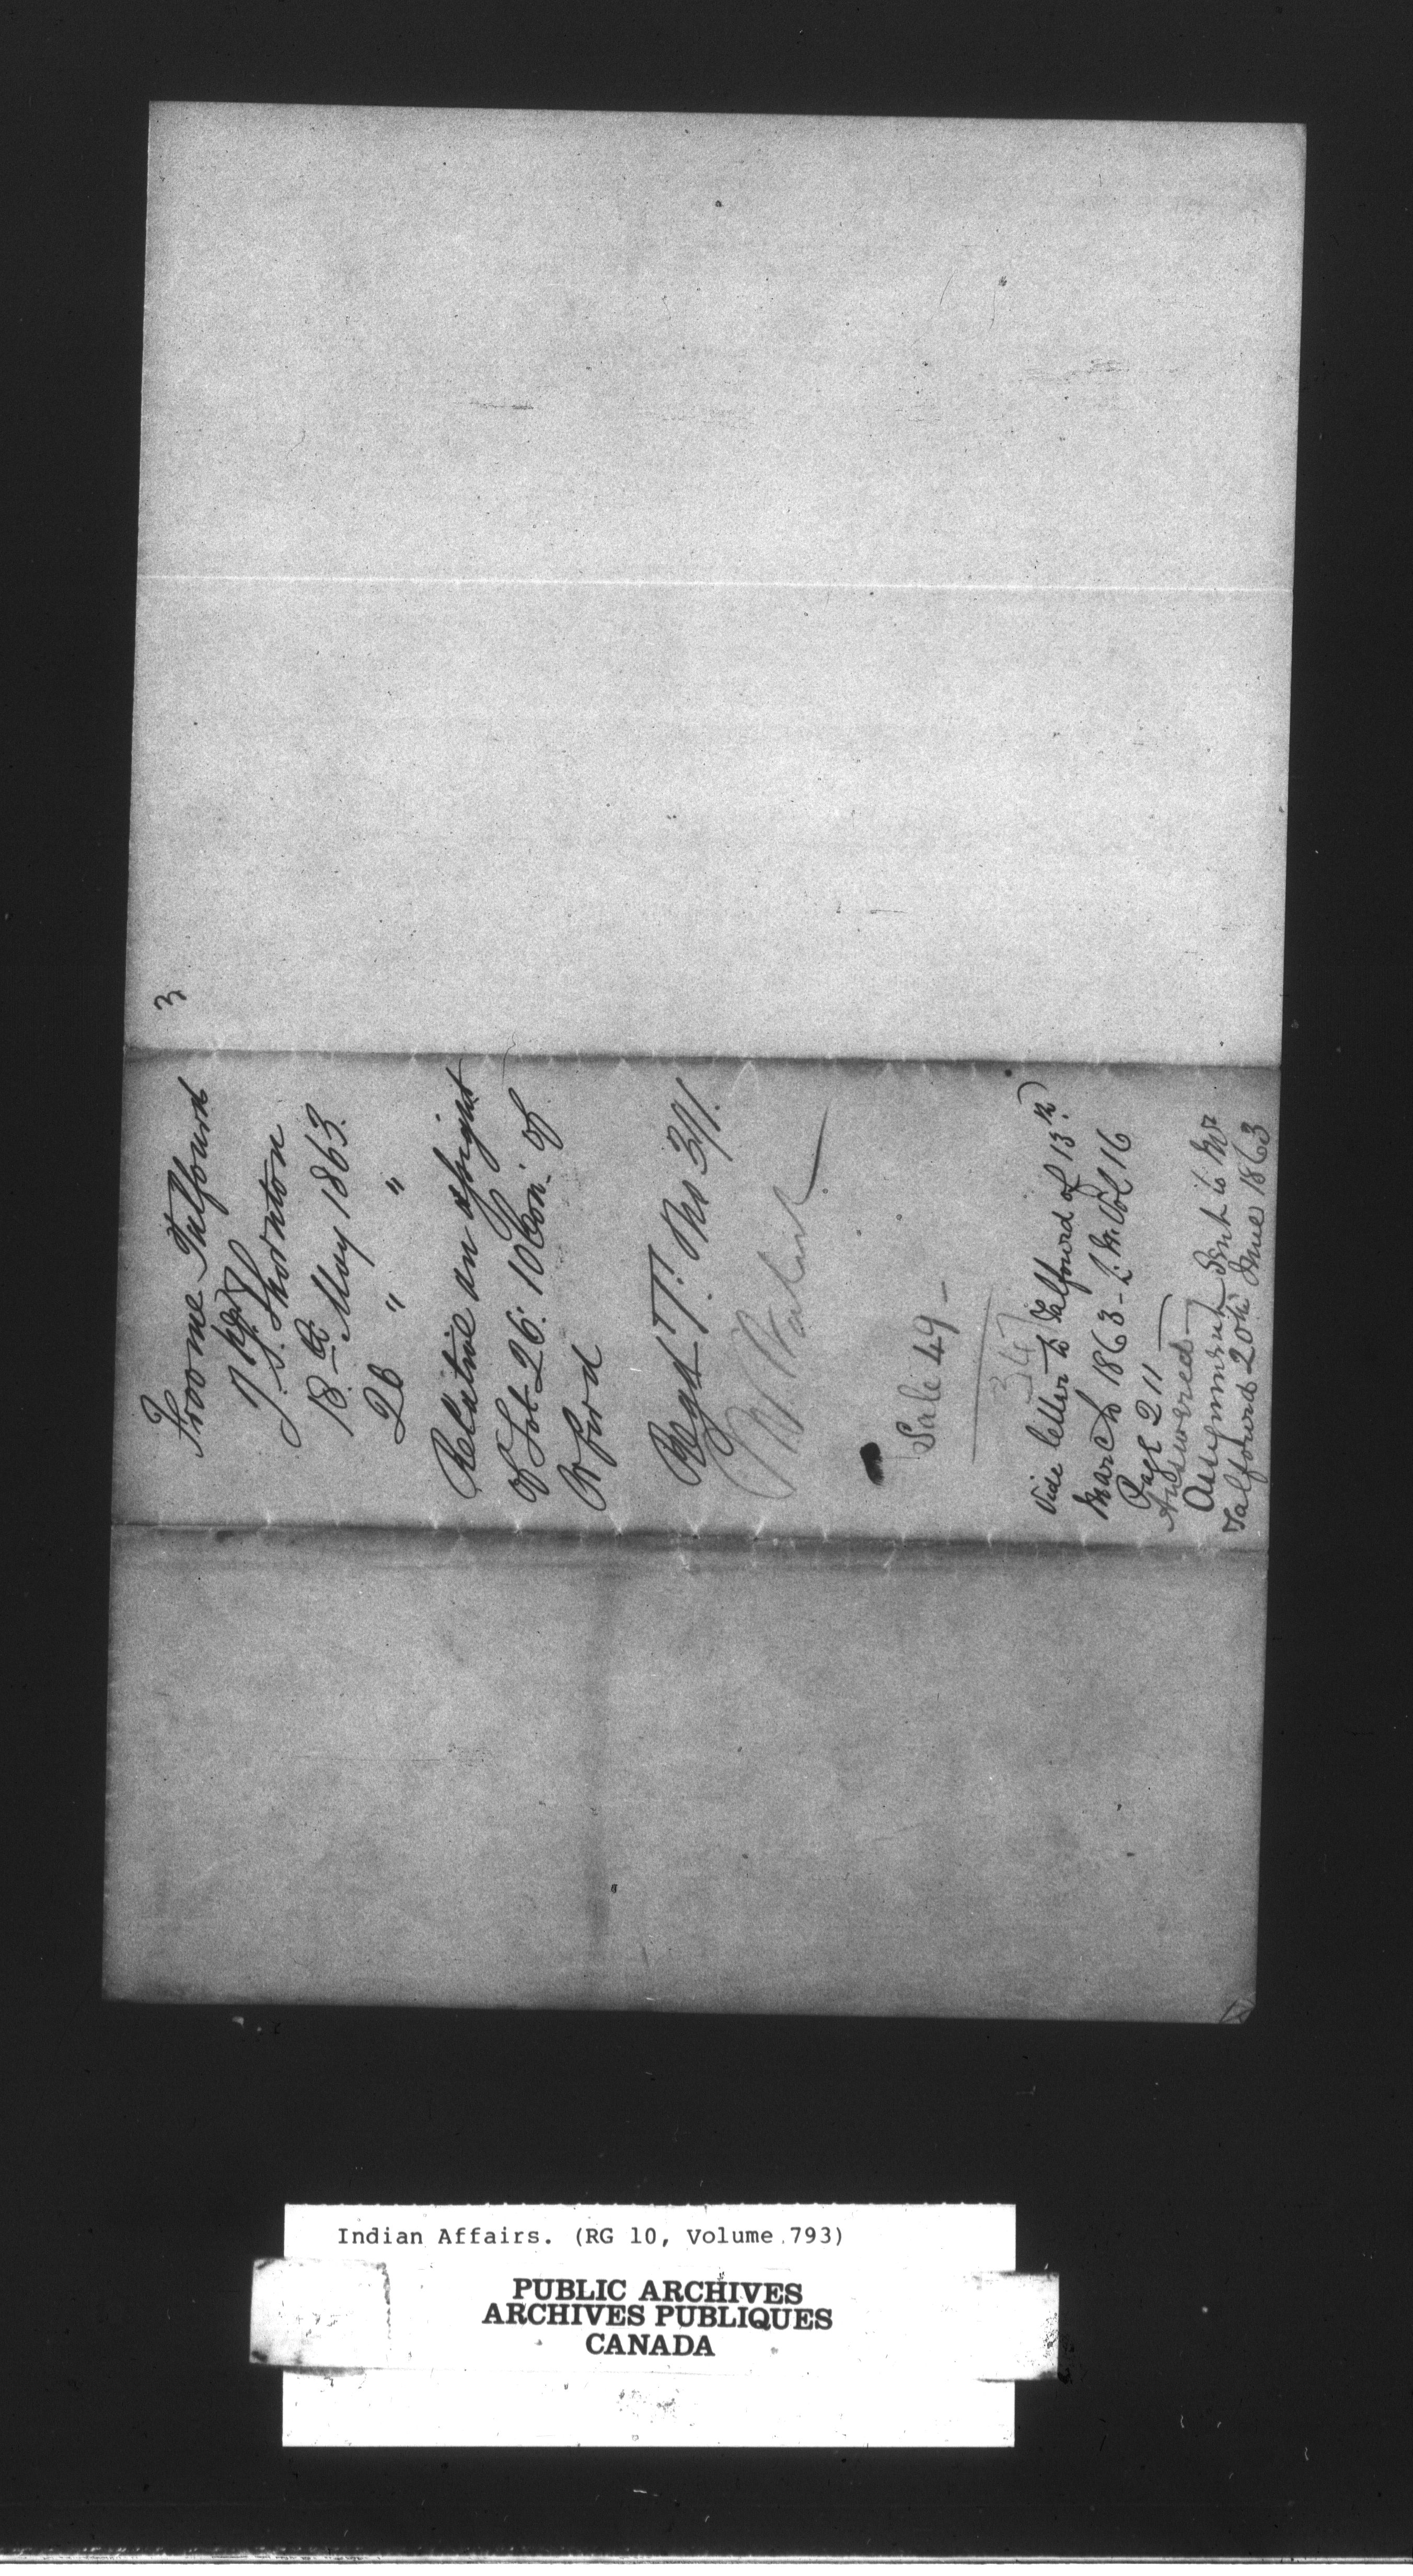 3
Froome Talfourd
J. S. Thornton
18th May 1863.
26 " "
Relative an assignt
of Lot 26: 10 Con: of
Orford
Regd T. No 371.
Sale 49 –
347
Vide letter to Talfourd of 13th
March 1863 – L. B. Vol 16
Page 211
Answered
Assignment sent to Mr
Talfourd 20th June 1863
Indian Affairs. (RG 10, Volume 793)
PUBLIC ARCHIVES
ARCHIVES PUBLIQUES
CANADA